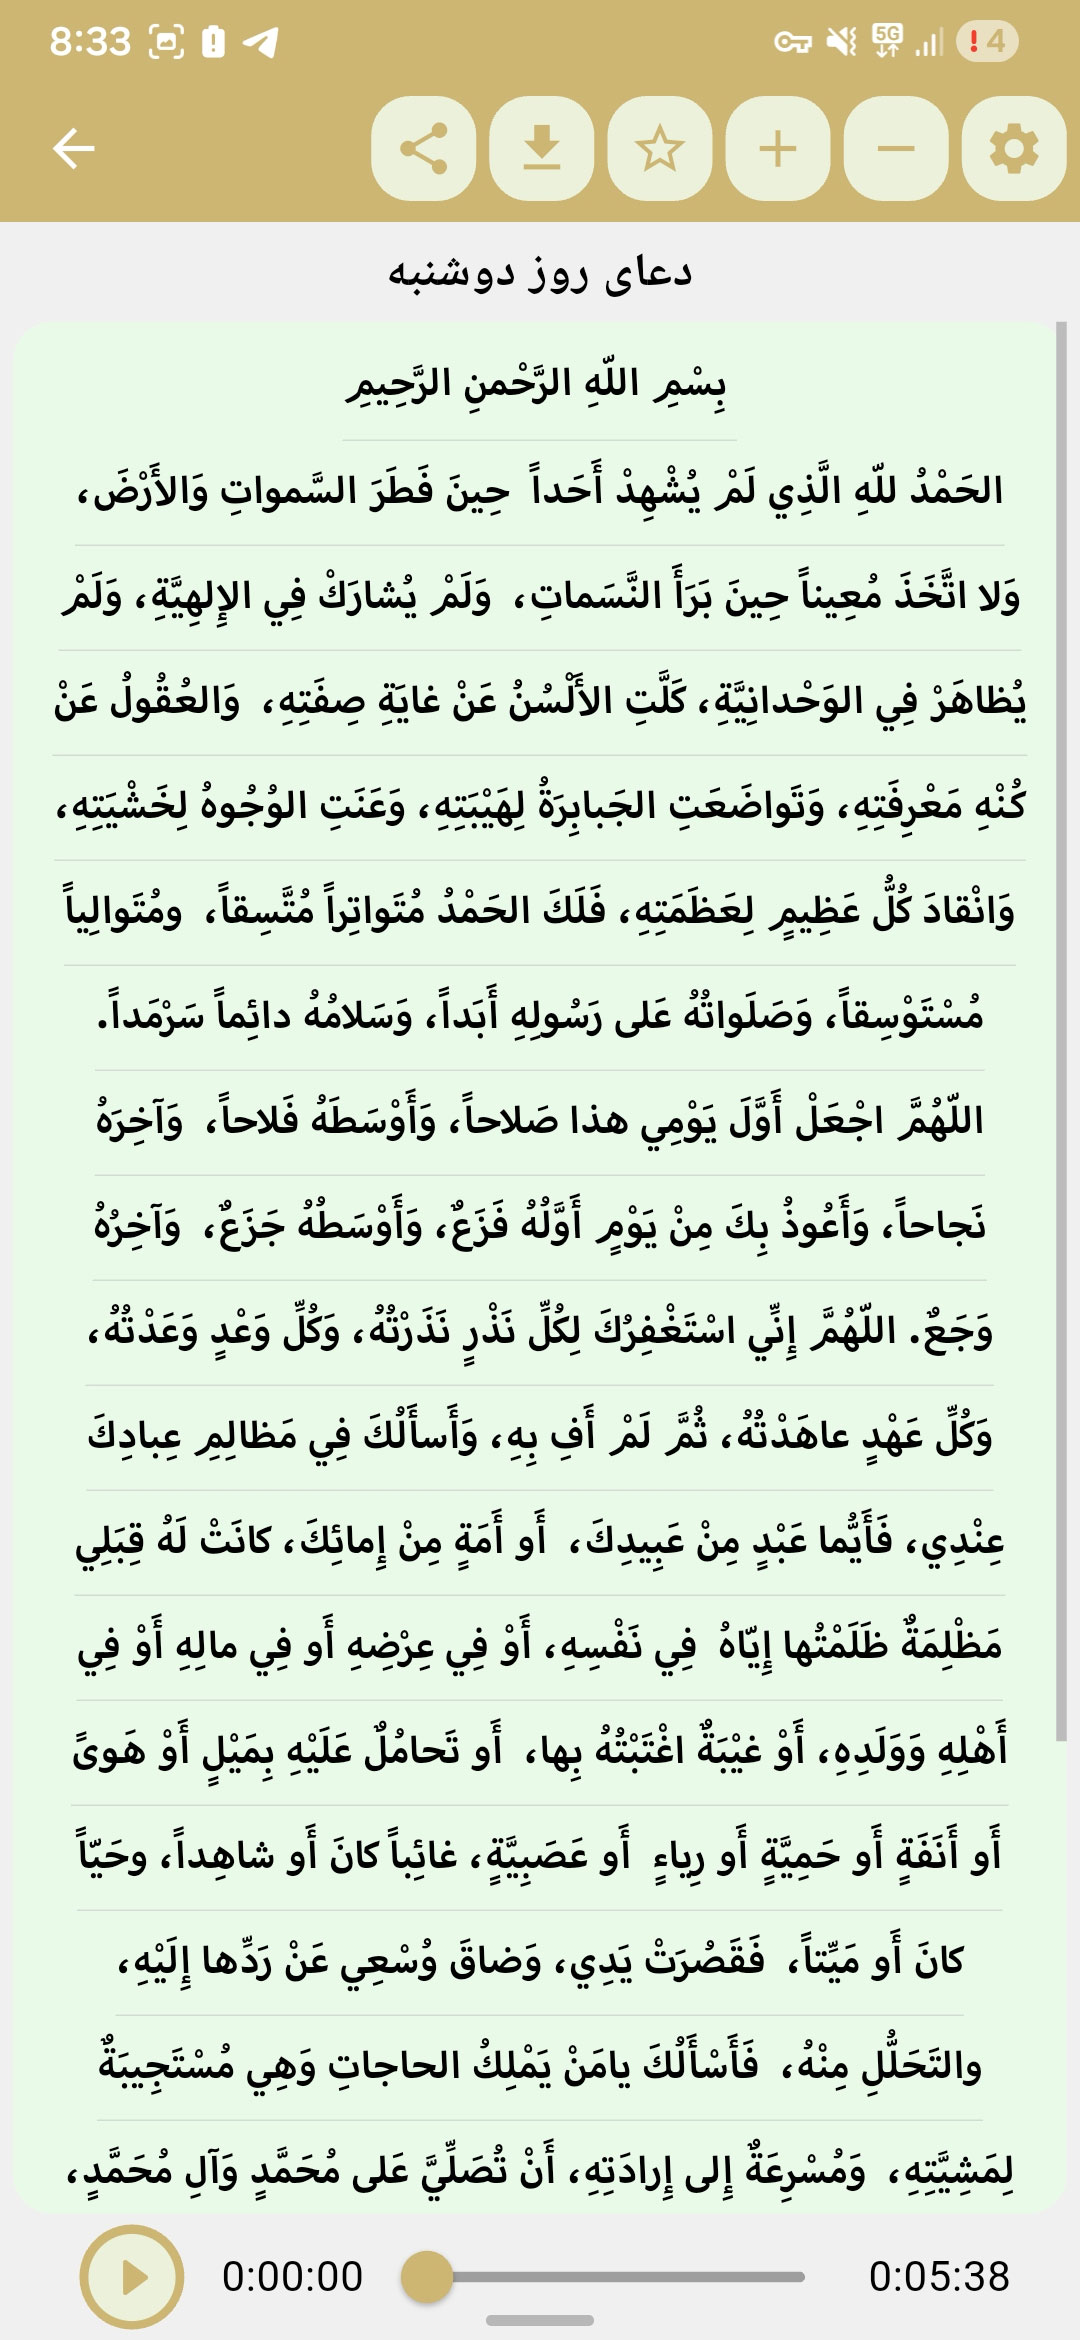 8:33
5G
! 4
دعای روز دوشنبه
بِسْمِ اللّهِ الرَّحْمنِ الرَّحِيمِ
الحَمْدُ للّهِ الَّذِي لَمْ يُشْهِدْ أَحَداً حِينَ فَطَرَ السَّمواتِ وَالأَرْضَ،
وَلا اتَّخَذَ مُعِيناً حِينَ بَرَأَ النَّسَماتِ، وَلَمْ يُشارَكْ فِي الإِلهِيَّةِ، وَلَمْ
يُظاهَرْ فِي الوَحْدانِيَّةِ، كَلَّتِ الأَلْسُنُ عَنْ غايَةِ صِفَتِهِ، وَالعُقُولُ عَنْ
كُنْهِ مَعْرِفَتِهِ، وَتَواضَعَتِ الجَبابِرَةُ لِهَيْبَتِهِ، وَعَنَتِ الوُجُوهُ لِخَشْيَتِهِ،
وَانْقادَ كُلُّ عَظِيمٍ لِعَظَمَتِهِ، فَلَكَ الحَمْدُ مُتَواتِراً مُتَّسِقاً، ومُتَوالِياً
مُسْتَوْسِقاً، وَصَلَواتُهُ عَلى رَسُولِهِ أَبَداً، وَسَلامُهُ دائِماً سَرْمَداً.
اللّهُمَّ اجْعَلْ أَوَّلَ يَوْمِي هذا صَلاحاً، وَأَوْسَطَهُ فَلاحاً، وَآخِرَهُ
نَجاحاً، وَأَعُوذُ بِكَ مِنْ يَوْمٍ أَوَّلُهُ فَزَعٌ، وَأَوْسَطُهُ جَزَعٌ، وَآخِرُهُ
وَجَعٌ. اللّهُمَّ إِنِّي اسْتَغْفِرُكَ لِكُلِّ نَذْرٍ نَذَرْتُهُ، وَكُلِّ وَعْدٍ وَعَدْتُهُ،
وَكُلِّ عَهْدٍ عاهَدْتُهُ، ثُمَّ لَمْ أَفِ بِهِ، وَأَسأَلُكَ فِي مَظالِمِ عِبادِكَ
عِنْدِي، فَأَيُّما عَبْدٍ مِنْ عَبِيدِكَ، أَو أَمَةٍ مِنْ إِمائِكَ، كانَتْ لَهُ قِبَلِي
مَظْلِمَةٌ ظَلَمْتُها إِيّاهُ فِي نَفْسِهِ، أَوْ فِي عِرْضِهِ أَو فِي مالِهِ أَوْ فِي
أَهْلِهِ وَوَلَدِهِ، أَوْ غيْبَةٌ اغْتَبْتُهُ بِها، أَو تَحامُلٌ عَلَيْهِ بِمَيْلٍ أَوْ هَوىً
أَو أَنَفَةٍ أَو حَمِيَّةٍ أَو رِياءٍ أَو عَصَبِيَّةٍ، غائِباً كانَ أَو شاهِداً، وحَيّاً
كانَ أَو مَيِّتاً، فَقَصُرَتْ يَدِي، وَضاقَ وُسْعِي عَنْ رَدِّها إِلَيْهِ،
والتَحَلُّلِ مِنْهُ، فَأَسْأَلُكَ يامَنْ يَمْلِكُ الحاجاتِ وَهِي مُسْتَجِيبَةٌ
لِمَشِيَّتِهِ، وَمُسْرِعَةٌ إِلى إِرادَتِهِ، أَنْ تُصَلِّيَّ عَلى مُحَمَّدٍ وَآلِ مُحَمَّدٍ،
0:00:00 0:05:38